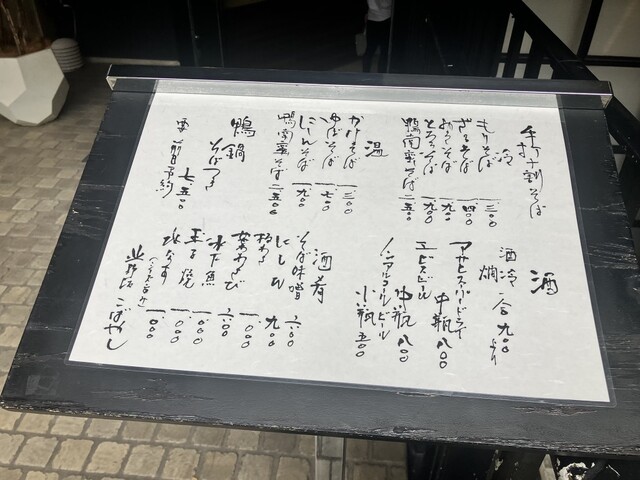 手打十割そば
冷
もりそば 一三〇〇
ざるそば 一四〇〇
おろしそば 一九〇〇
とろろそば 一九〇〇
鴨南蛮そば 二一五〇
温
かけそば 一三〇〇
ゆばそば 一七〇〇
にしんそば 一九〇〇
鴨南蛮そば 二一五〇
鴨鍋
そばつき 七五〇〇
要前日予約
酒
酒 冷 燗 一合 九〇〇より
アサヒスーパードライ
中瓶 八〇〇
ヱビスビール
中瓶 八〇〇
ノンアルコールビール
小瓶 五〇〇
酒肴
そば味噌
にしん
板わさ 九〇〇
葉わさび
水下魚
玉子焼
水なす
こばやし